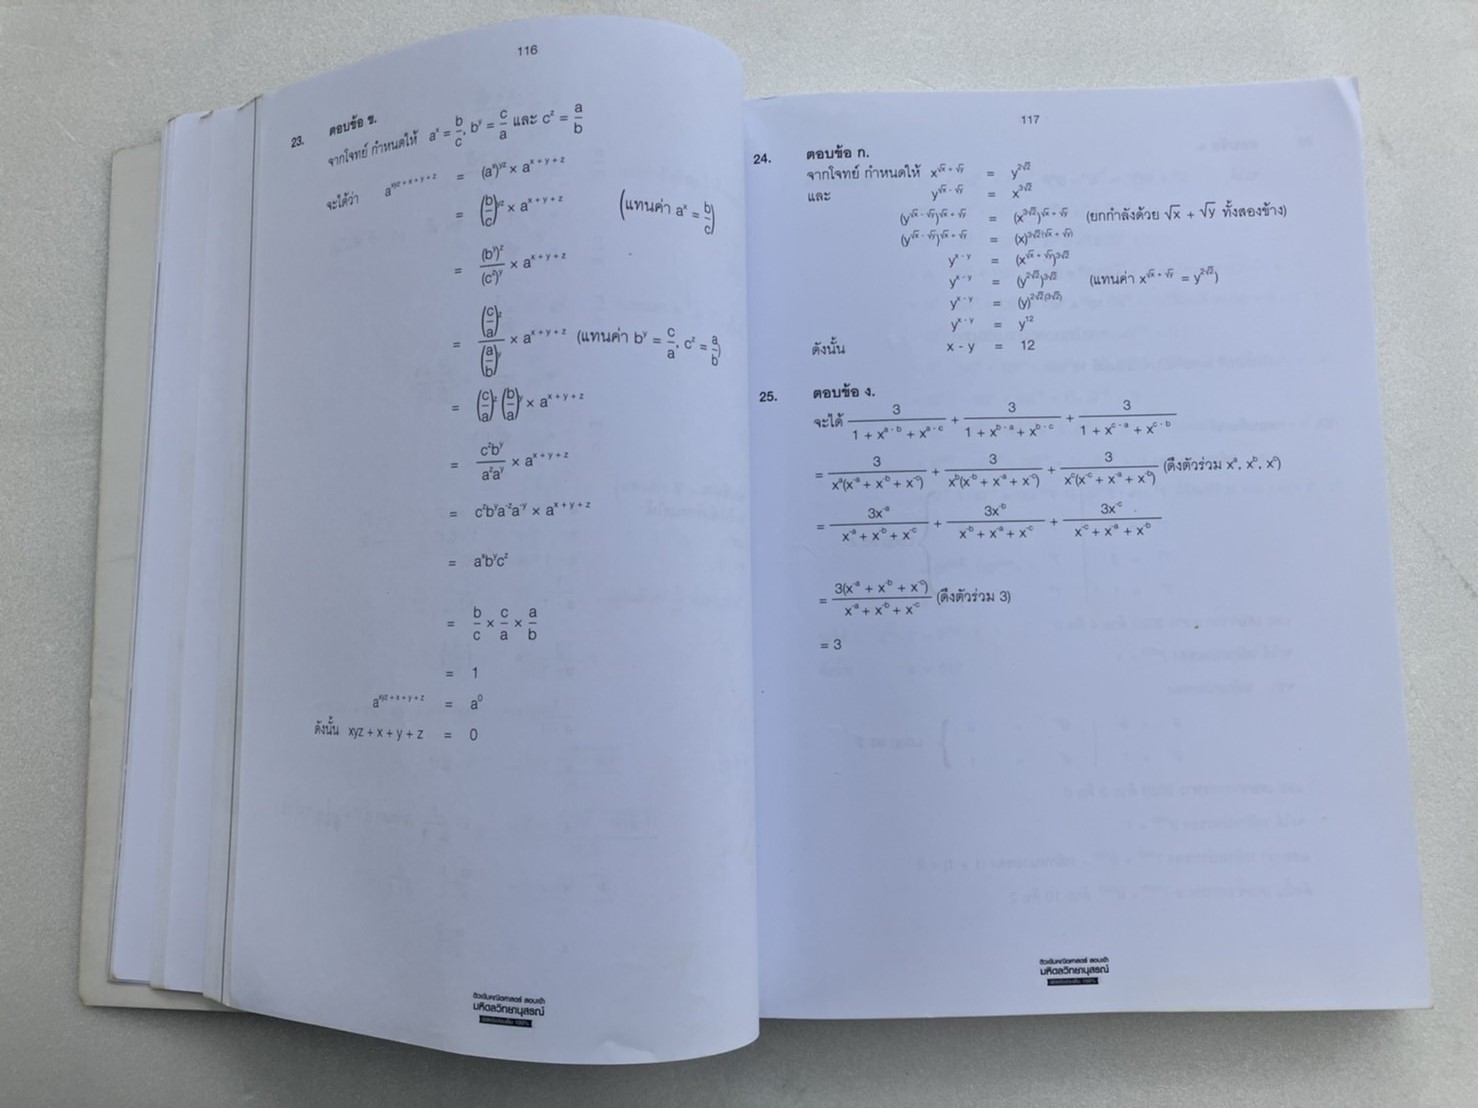 116
23. ตอบข้อ ข.
จากโจทย์ กำหนดให้ a^x = b/c, b^y = c/a และ c^z = a/b
จะได้ว่า a^(xyz + x + y + z) = (a^x)^(yz) × a^(x + y + z)
= (b/c)^(yz) × a^(x + y + z) (แทนค่า a^x = b/c)
= (b^y)^z/(c^z)^y × a^(x + y + z)
= (c/a)^z/(a/b)^y × a^(x + y + z) (แทนค่า b^y = c/a, c^z = a/b)
= (c/a)^z (b/a)^y × a^(x + y + z)
= c^z b^y/a^z a^y × a^(x + y + z)
= c^z b^y a^-z a^-y × a^(x + y + z)
= a^x b^y c^z
= b/c × c/a × a/b
= 1
a^(xyz + x + y + z) = a^0
ดังนั้น xyz + x + y + z = 0
ติวเข้มคณิตศาสตร์ สอบเข้า
มหิดลวิทยานุสรณ์
117
24. ตอบข้อ ก.
จากโจทย์ กำหนดให้ x^(√x + √y) = y^(2√2)
และ y^(√x - √y) = x^(3√2)
(y^(√x - √y))^(√x + √y) = (x^(3√2))^(√x + √y) (ยกกำลังด้วย √x + √y ทั้งสองข้าง)
(y^(√x - √y))^(√x + √y) = (x)^(3√2(√x + √y))
y^(x - y) = (x^(√x + √y))^(3√2)
y^(x - y) = (y^(2√2))^(3√2) (แทนค่า x^(√x + √y) = y^(2√2))
y^(x - y) = (y)^(2√2(3√2))
y^(x - y) = y^12
ดังนั้น x - y = 12
25. ตอบข้อ ง.
จะได้ 3/(1 + x^(a - b) + x^(a - c)) + 3/(1 + x^(b - a) + x^(b - c)) + 3/(1 + x^(c - a) + x^(c - b))
= 3/(x^a(x^-a + x^-b + x^-c)) + 3/(x^b(x^-b + x^-a + x^-c)) + 3/(x^c(x^-c + x^-a + x^-b)) (ดึงตัวร่วม x^a, x^b, x^c)
= 3x^-a/(x^-a + x^-b + x^-c) + 3x^-b/(x^-b + x^-a + x^-c) + 3x^-c/(x^-c + x^-a + x^-b)
= 3(x^-a + x^-b + x^-c)/(x^-a + x^-b + x^-c) (ดึงตัวร่วม 3)
= 3
ติวเข้มคณิตศาสตร์ สอบเข้า
มหิดลวิทยานุสรณ์